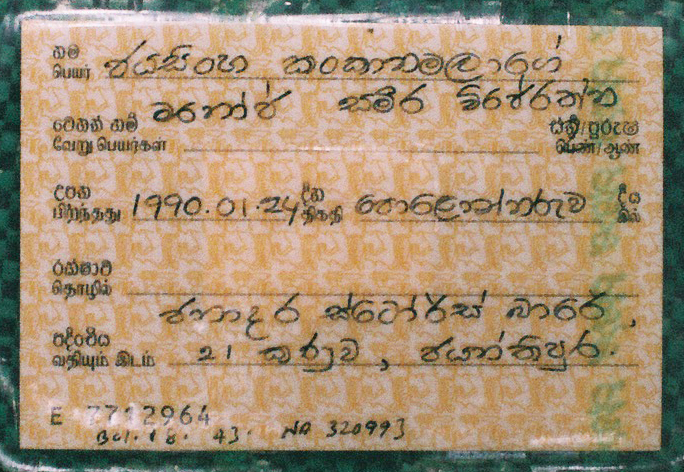 නම ජයසිංහ කංකානමලාගේ
பெயர்
මනෝජ් සමීර විජේරත්න
වෙනත් නම් ස්ත්‍රී/පුරුෂ
வேறு பெயர்கள் பெண்/ஆண்
උපන් 1990.01.24 දින පොලොන්නරුව දීය
பிறந்தது திகதி இல்
රක්ෂාව
தொழில்
ජනාදර ස්ටෝර්ස් බාරේ,
පදිංචිය
வதியும் இடம் 21 කුණුව, ජයන්තිපුර.
E 7712964
43. NA 320993